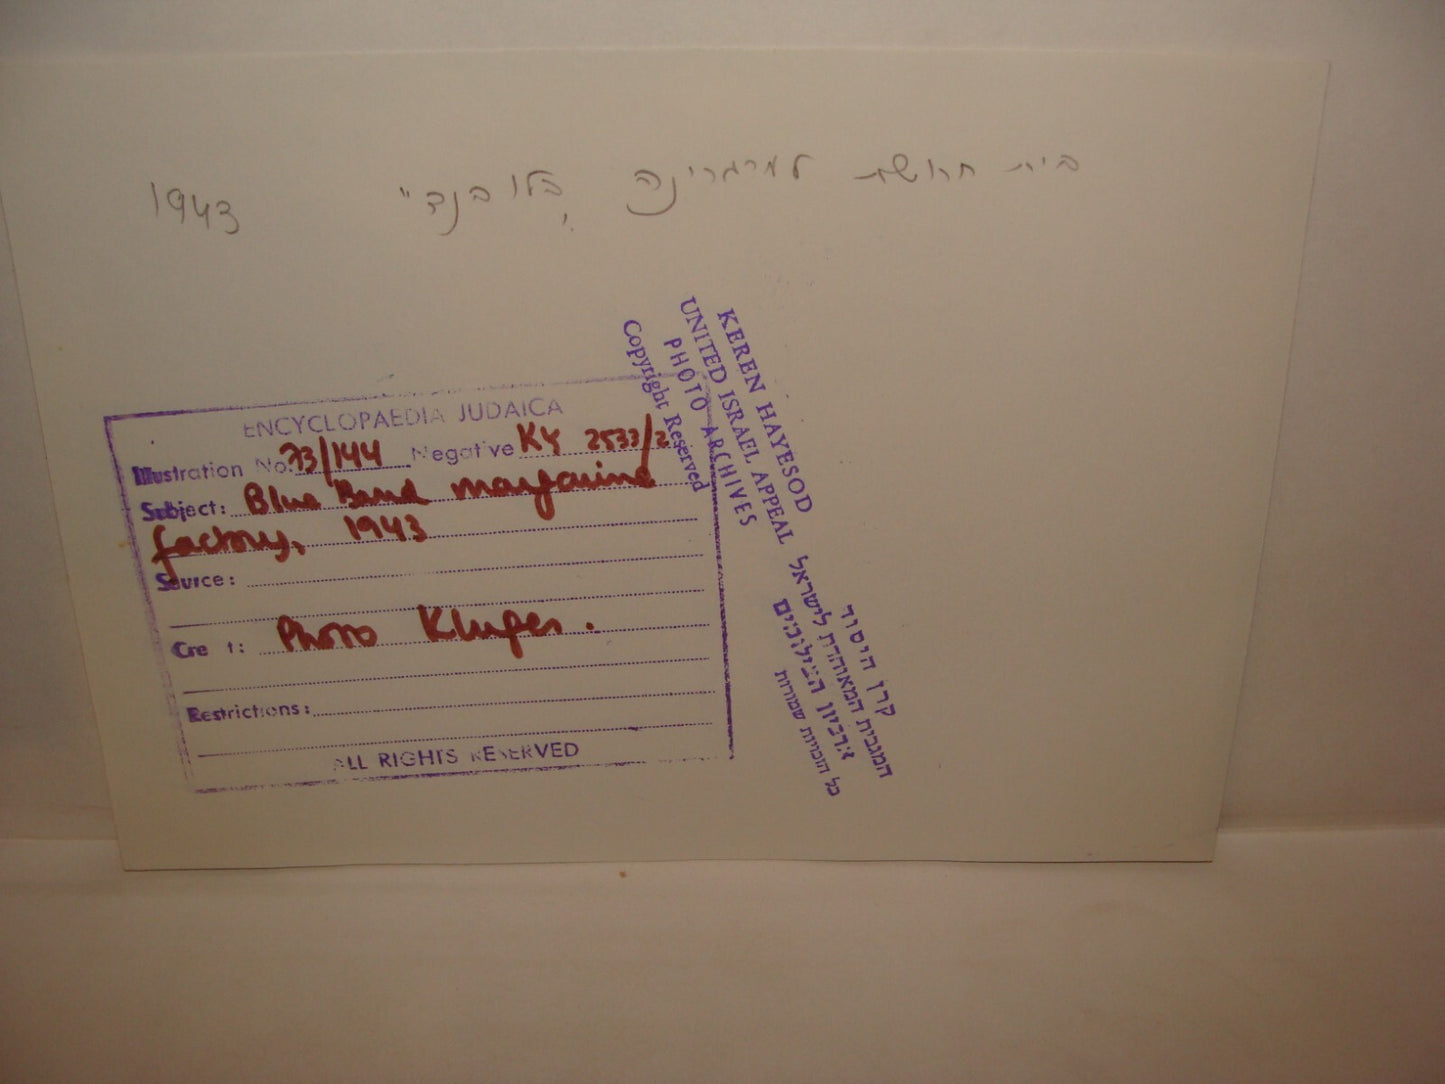 בית חרושת למרגרינה "בלו בנד" 1943
ENCYCLOPAEDIA JUDAICA
Illustration No. 73/144 Negative KY 2533/2
Subject: Blue Band margarine
factory, 1943
Source:
Credit: Photo Kluger.
Restrictions:
ALL RIGHTS RESERVED
KEREN HAYESOD
UNITED ISRAEL APPEAL
PHOTO ARCHIVES
Copyright Reserved
קרן היסוד
המגבית המאוחדת לישראל
ארכיון הצילומים
כל הזכויות שמורות